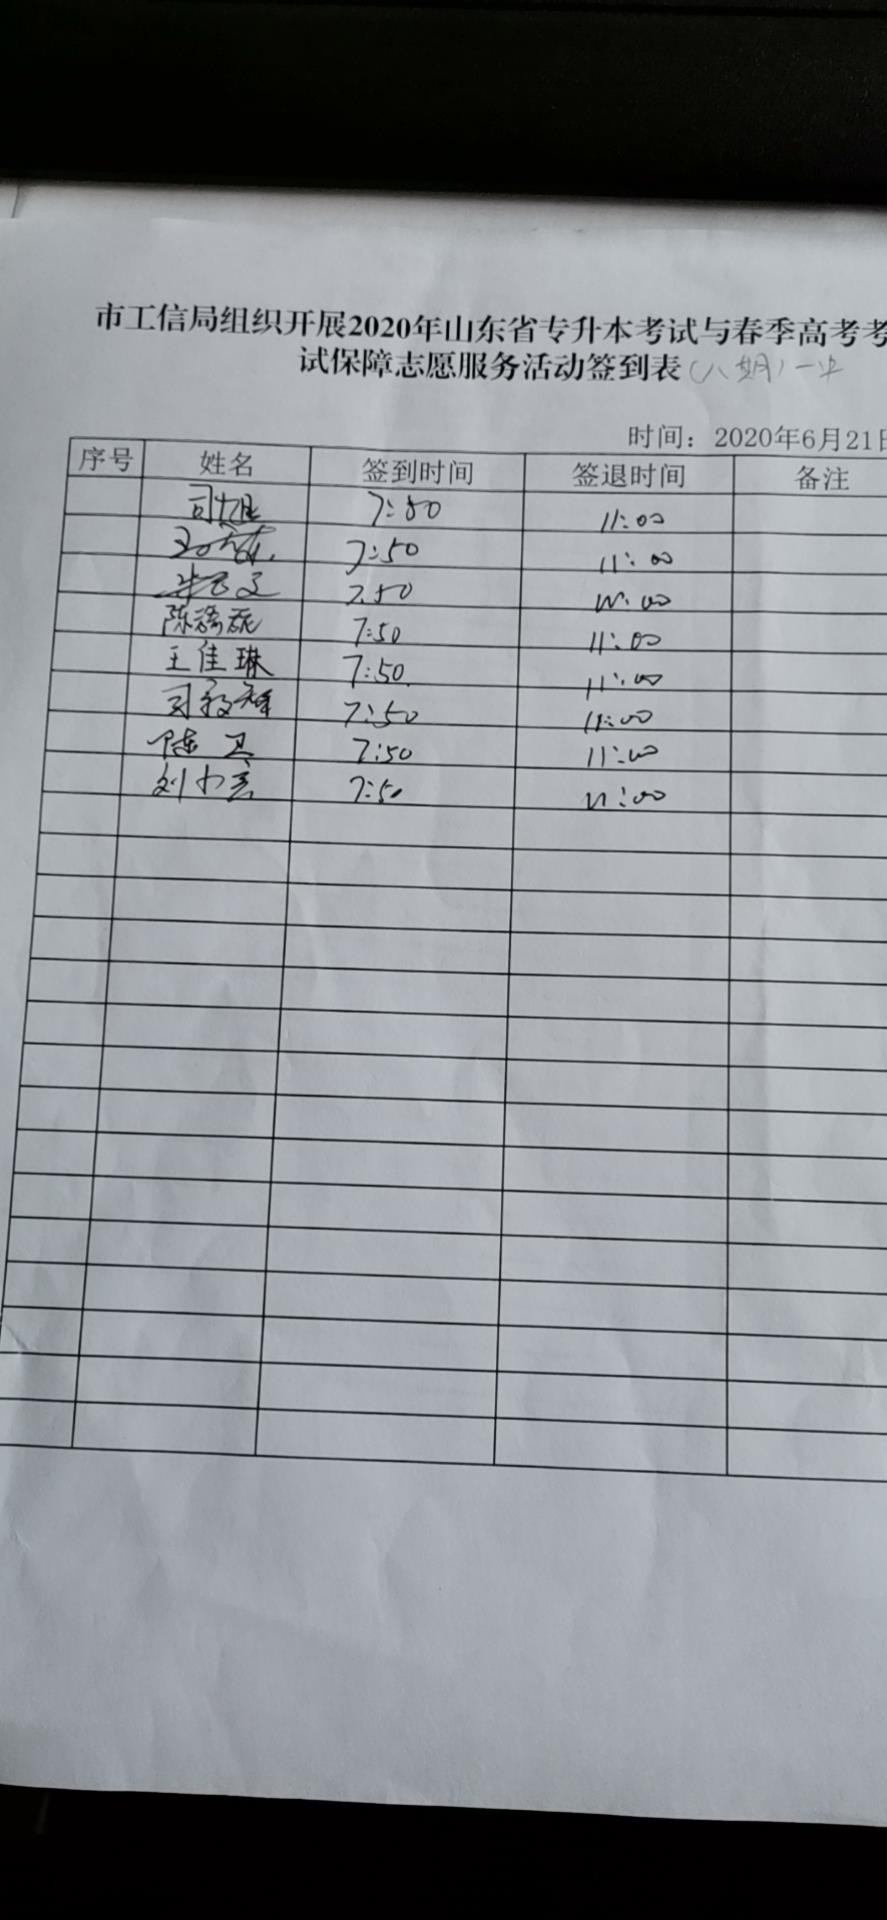 市工信局组织开展2020年山东省专升本考试与春季高考考
试保障志愿服务活动签到表（八期）一中
时间：2020年6月21日
序号 姓名 签到时间 签退时间 备注
7:50 11:00
7:50 11:00
7:50 11:00
陈 7:50 11:00
王佳琳 7:50 11:00
7:50 11:00
陈卫 7:50 11:00
刘 7:50 11:00